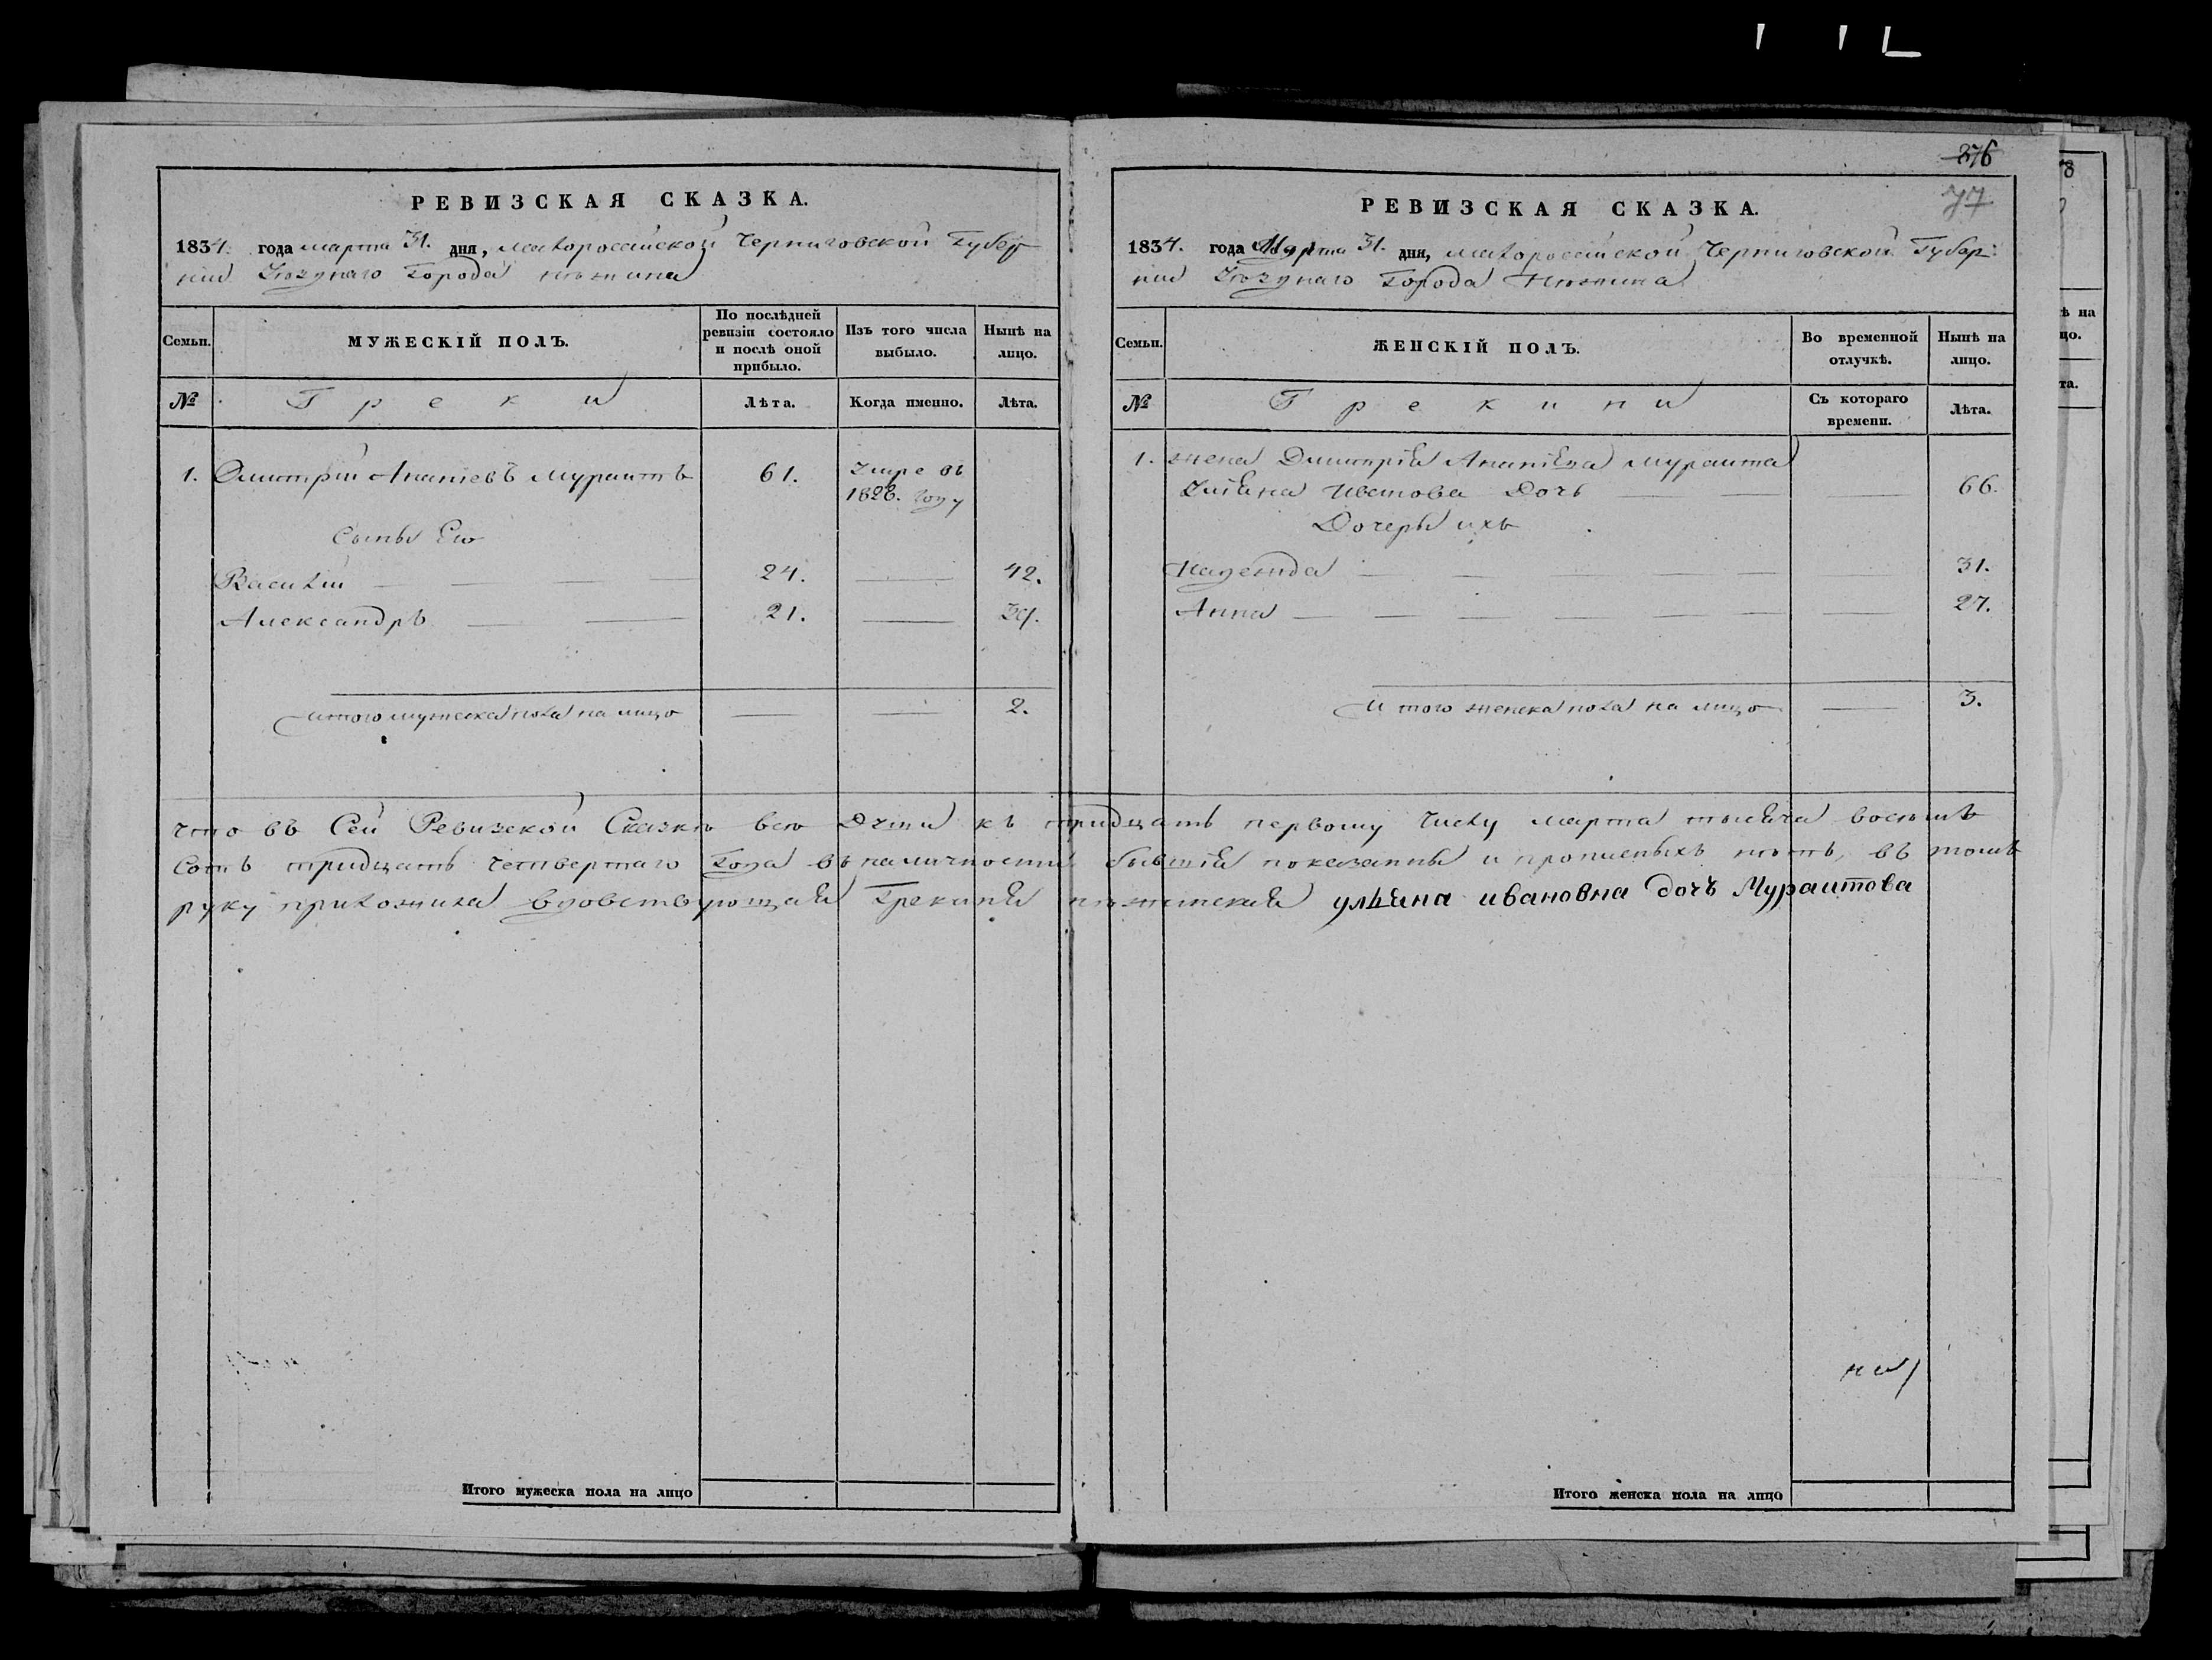 РЕВИЗСКАЯ СКАЗКА.
1834. года марта 31. дня, малороссийской Черниговской Губер
нии Уѣзднаго Города нѣжина
Семьи. МУЖЕСКІЙ ПОЛЪ. По послѣдней ревизіи состояло и послѣ оной прибыло. Изъ того числа выбыло. Нынѣ на лицо.
№ Греки Лѣта. Когда именно. Лѣта.
1. Дмитрій Ананіевъ Мураитъ 61. Умре въ
1828. году
Сыны Его
Василій 24. 42.
Александръ 21. 39.
итого мужеска пола на лицо 2.
Итого мужеска пола на лицо
276
77
РЕВИЗСКАЯ СКАЗКА.
1834. года Марта 31. дня, малороссійской Черниговской Губер:
нии Уѣзднаго Города Нѣжина
Семьи. ЖЕНСКІЙ ПОЛЪ. Во временной отлучкѣ. Нынѣ на лицо.
№ Грекини Съ котораго времени. Лѣта.
1. жена Дмитрія Ананіева Мураита
Дочь 66.
Дочеры ихъ
Надежда 31.
Анна 27.
Итого женска пола на лицо 3.
что въ Сей Ревизской Сказкѣ всѣ Души къ тридцать первому Числу марта тысяча восьмъ
Сотъ тридцать четвертаго Года въ наличности бывшія показанны и прописныхъ нѣтъ, въ томъ
руку приложила вдовствующая Грекиня нѣжинская уліяна ивановна дочъ Мураитова
Итого женска пола на лицо